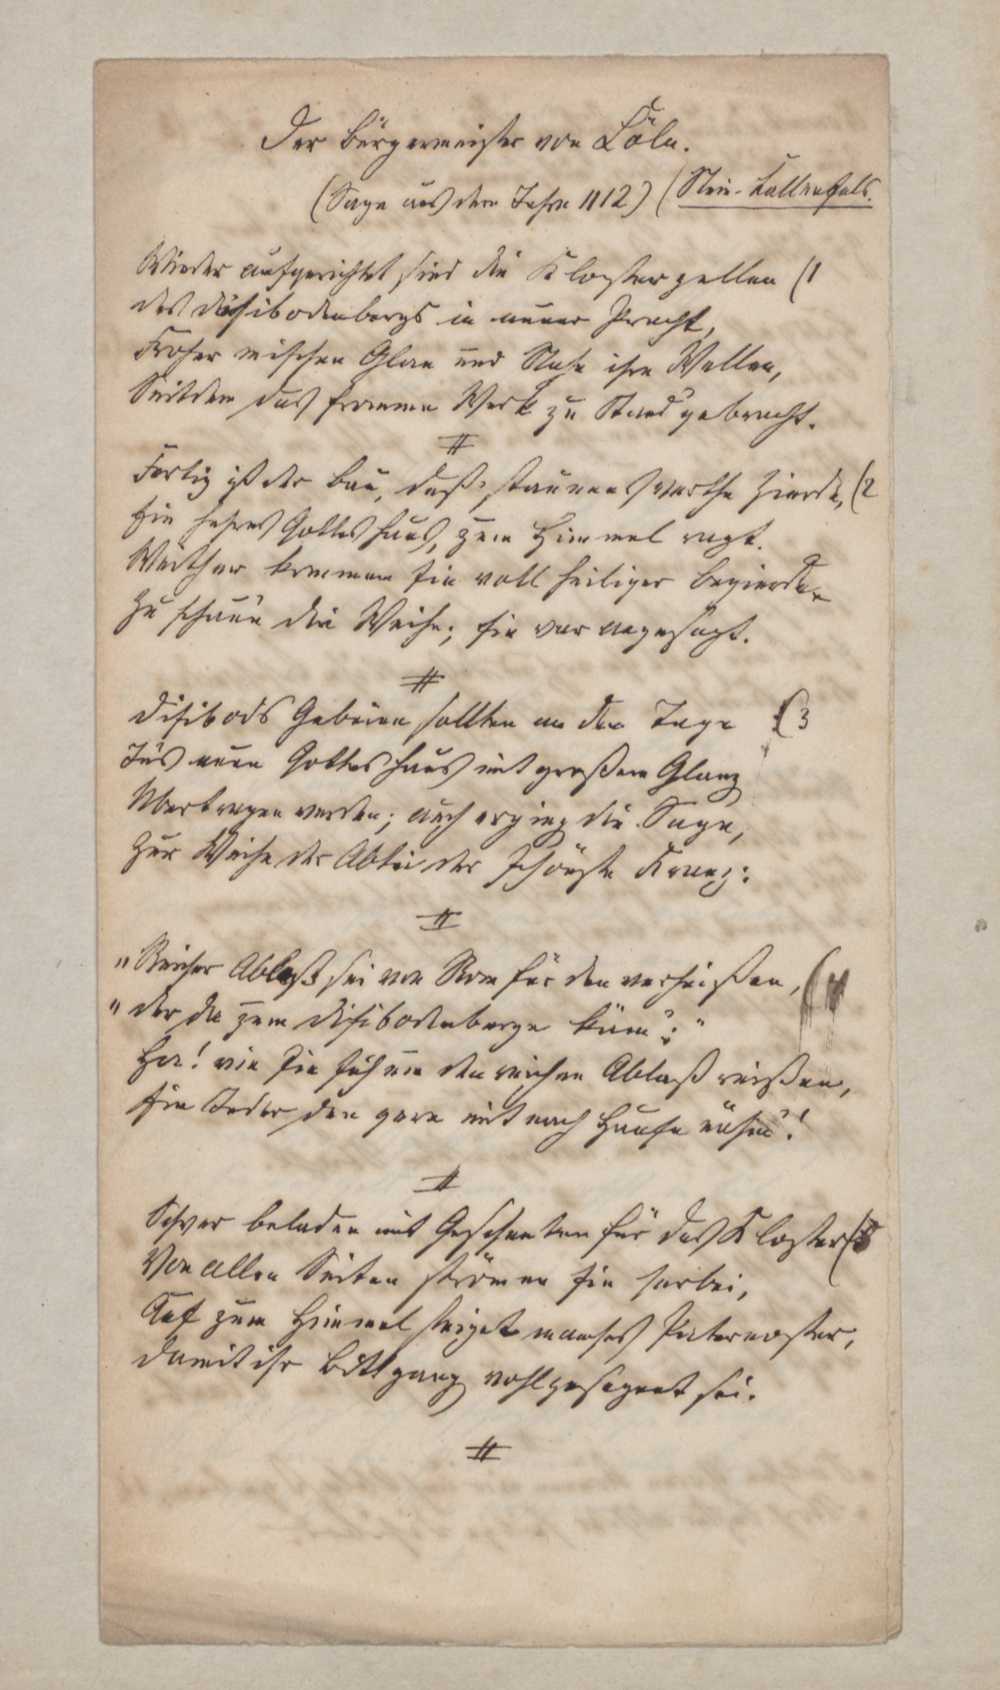 Der Bürgermeister von Cöln.
(Sage aus dem Jahre 1112) (Stein-Kallenfels.
Wieder aufgerichtet sind die Klosterzellen (1
des Disibodenbergs in neuer Pracht,
Froher mischen Glan und Nahe ihre Wellen,
Seitdem das fromme Werk zu Stand' gebracht.
Fertig ist der Bau, deß' staunenswerthe Zierde, (2
Ein hehres Gotteshaus, zum Himmel ragt.
Weither kommen sie voll heiliger Begierde
Zu schau'n die Weihe; sie war angesagt.
Disibods Gebeine sollten an dem Tage (3
Ins neue Gotteshaus mit großem Glanz
Übertragen werden; auch erging die Sage,
Zur Weihe der Abtei der schönste Kranz:
"Reicher Ablaß sei von Rom für den verheißen, (4
"der da zum Disibodenberge käm':"
Ha! wie sie sich um den reichen Ablaß reißen,
Ein Jeder den gern mit nach Hause nähm'!
Schwer beladen mit Geschenken für das Kloster (5
Von allen Seiten strömen sie herbei,
Auf zum Himmel steiget manches Paternoster,
Damit ihr Bittgang wohlgesegnet sei.